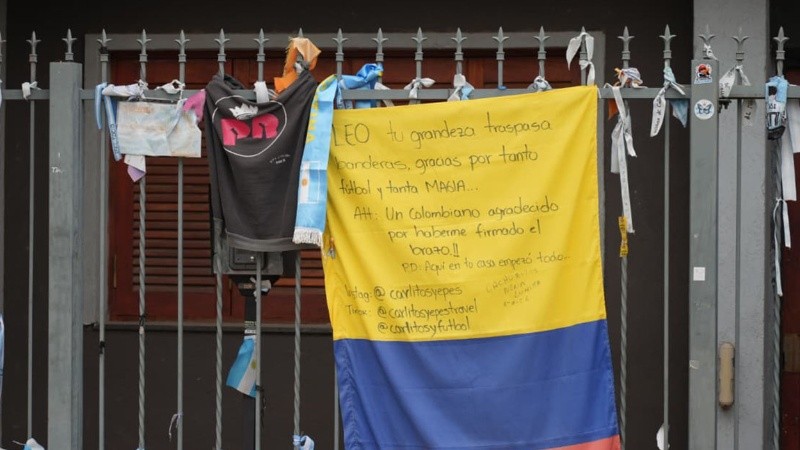 PR
LEO tu grandeza traspasa
banderas, gracias por tanto
fútbol y tanta MAGIA...
Att: Un Colombiano agradecido
por haberme firmado el
brazo.!!
P.D: Aquí en tu casa empezó todo...
Instag: @carlitosyepes
@carlitosyepestravel
@carlitosyfutbol